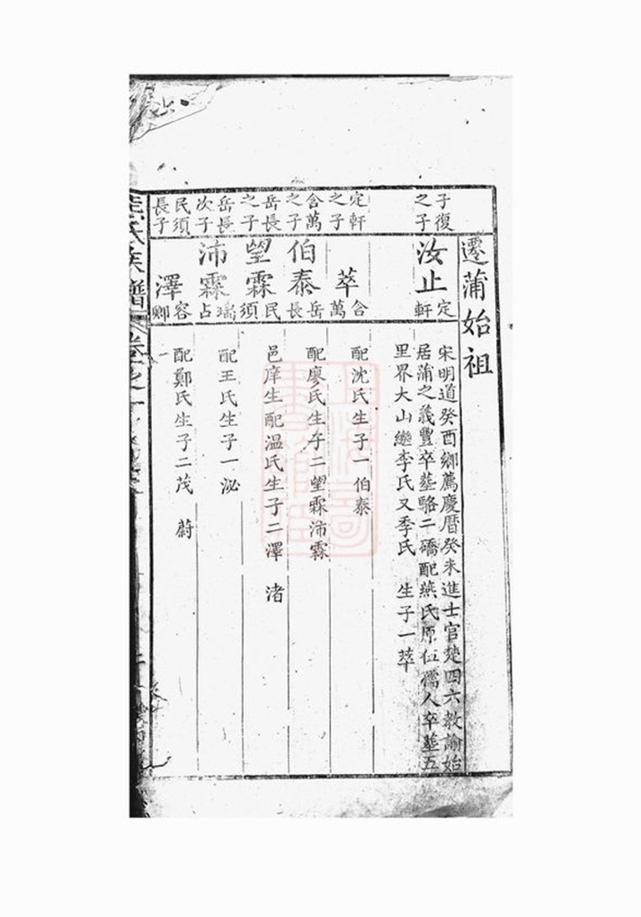 遷蒲始祖
子復之子
汝止
定軒
宋明道癸酉鄉薦慶曆癸未進士官楚四六教諭始
居蒲之義豐卒塟駱二礄配燕氏原仕儒人卒塟五
里界大山繼李氏又季氏 生子一萃
定軒之子
萃
含萬
配沈氏生子一伯泰
含萬之子
伯泰
岳長
配廖氏生子二望霖沛霖
岳長之子
望霖
民須
邑庠生配温氏生子二澤 渚
岳長次子
沛霖
瑞占
配王氏生子一泌
民須長子
澤
容卿
配鄭氏生子二茂 蔚
氏族譜
卷之